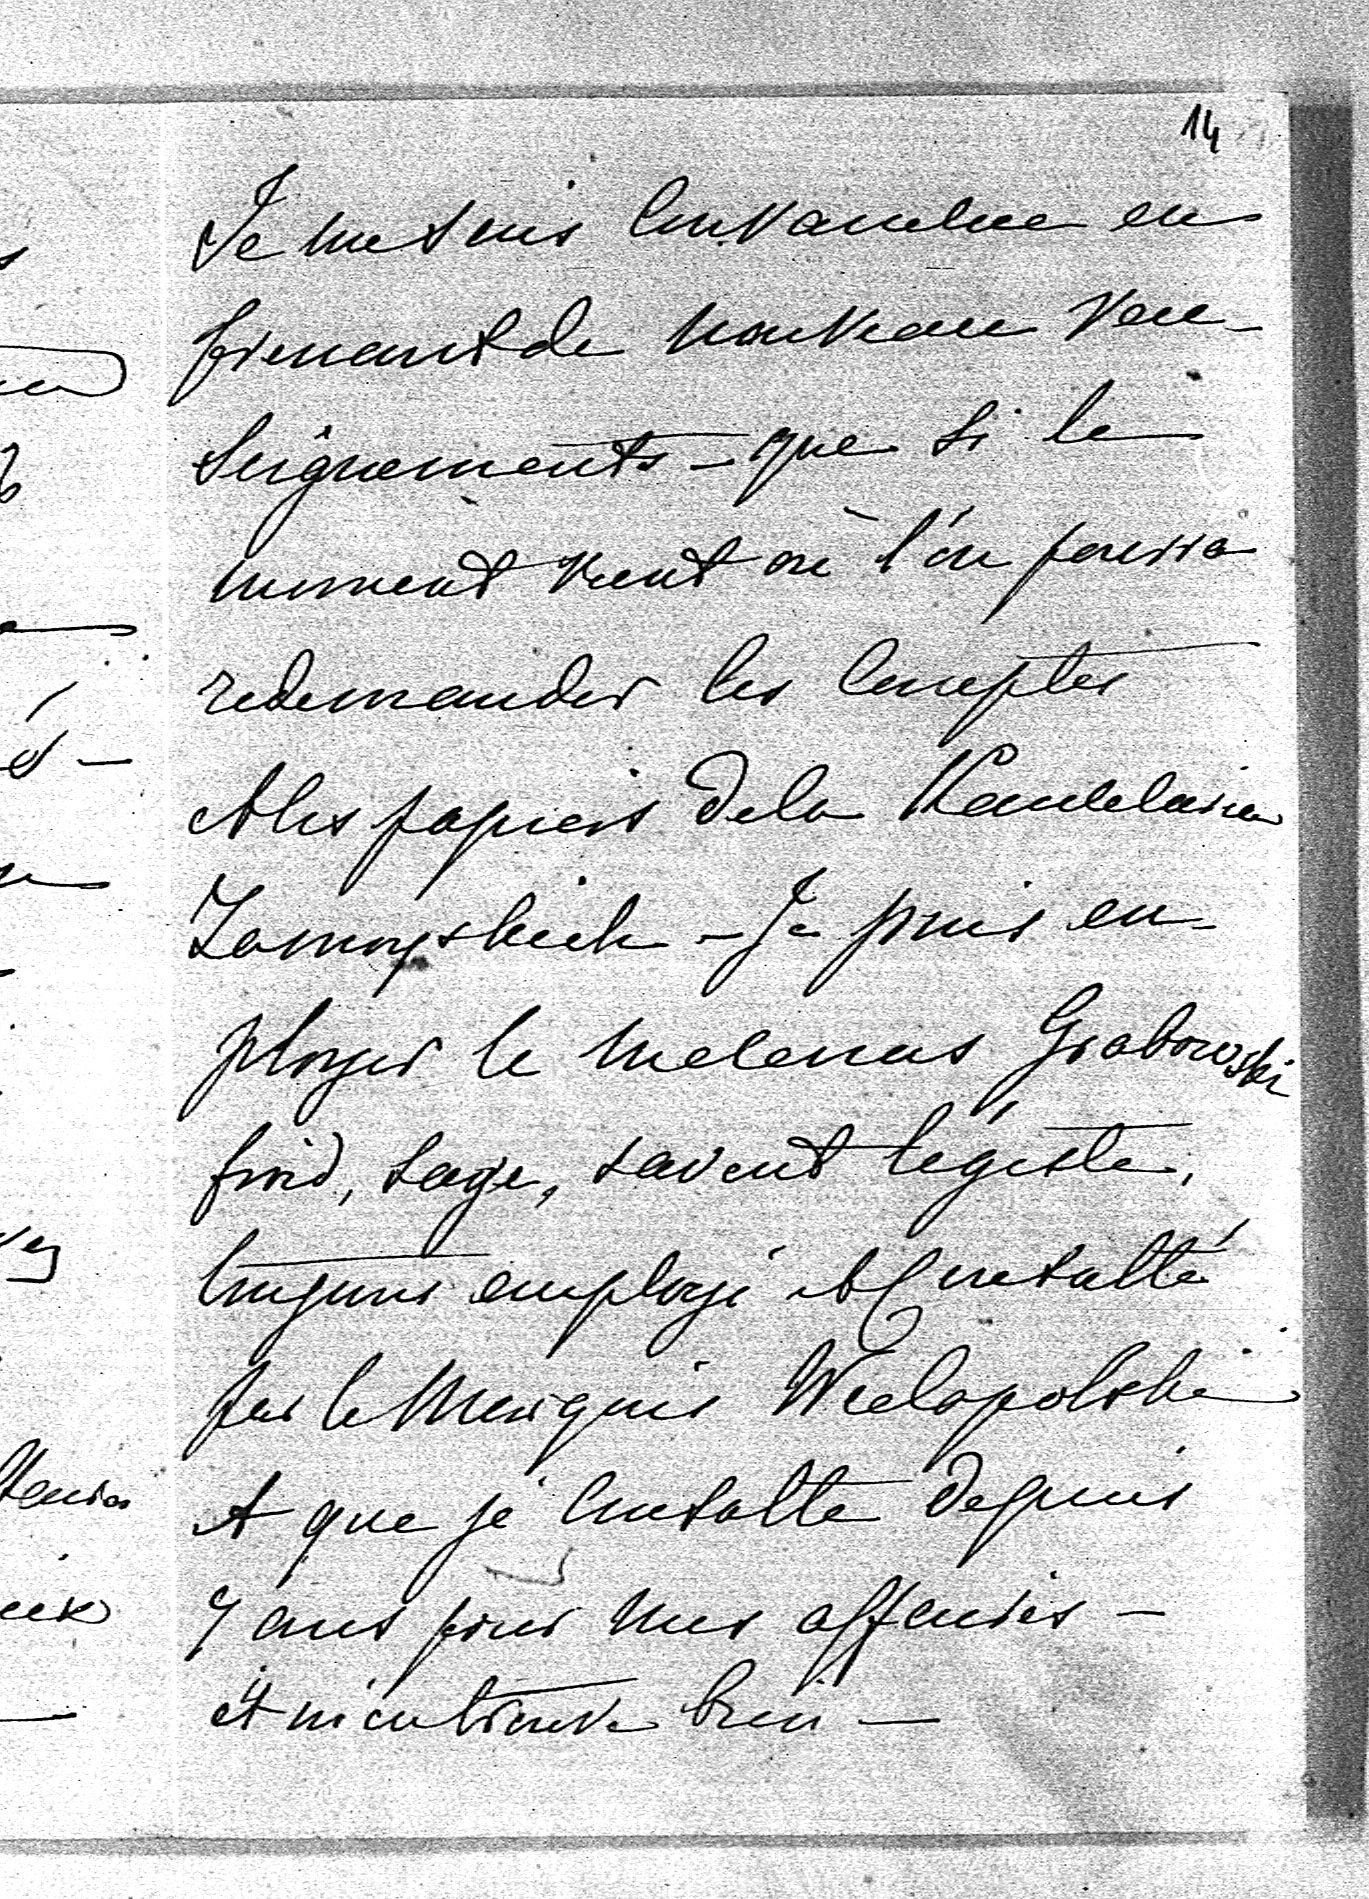 14
Je me suis convaincue en
prenant de nouveau ren-
seignements – que si le
moment vient où l'on pourra
redemander les comptes
et les papiers de la Kancelaria
Zamoyskich – Je puis em-
ployer le mecenas Grabowski
froid, sage, savant légiste,
toujours employé et consulté
par le Marquis Wielopolski
et que je consulte depuis
7 ans pour mes affaires –
et m'en trouve bien –